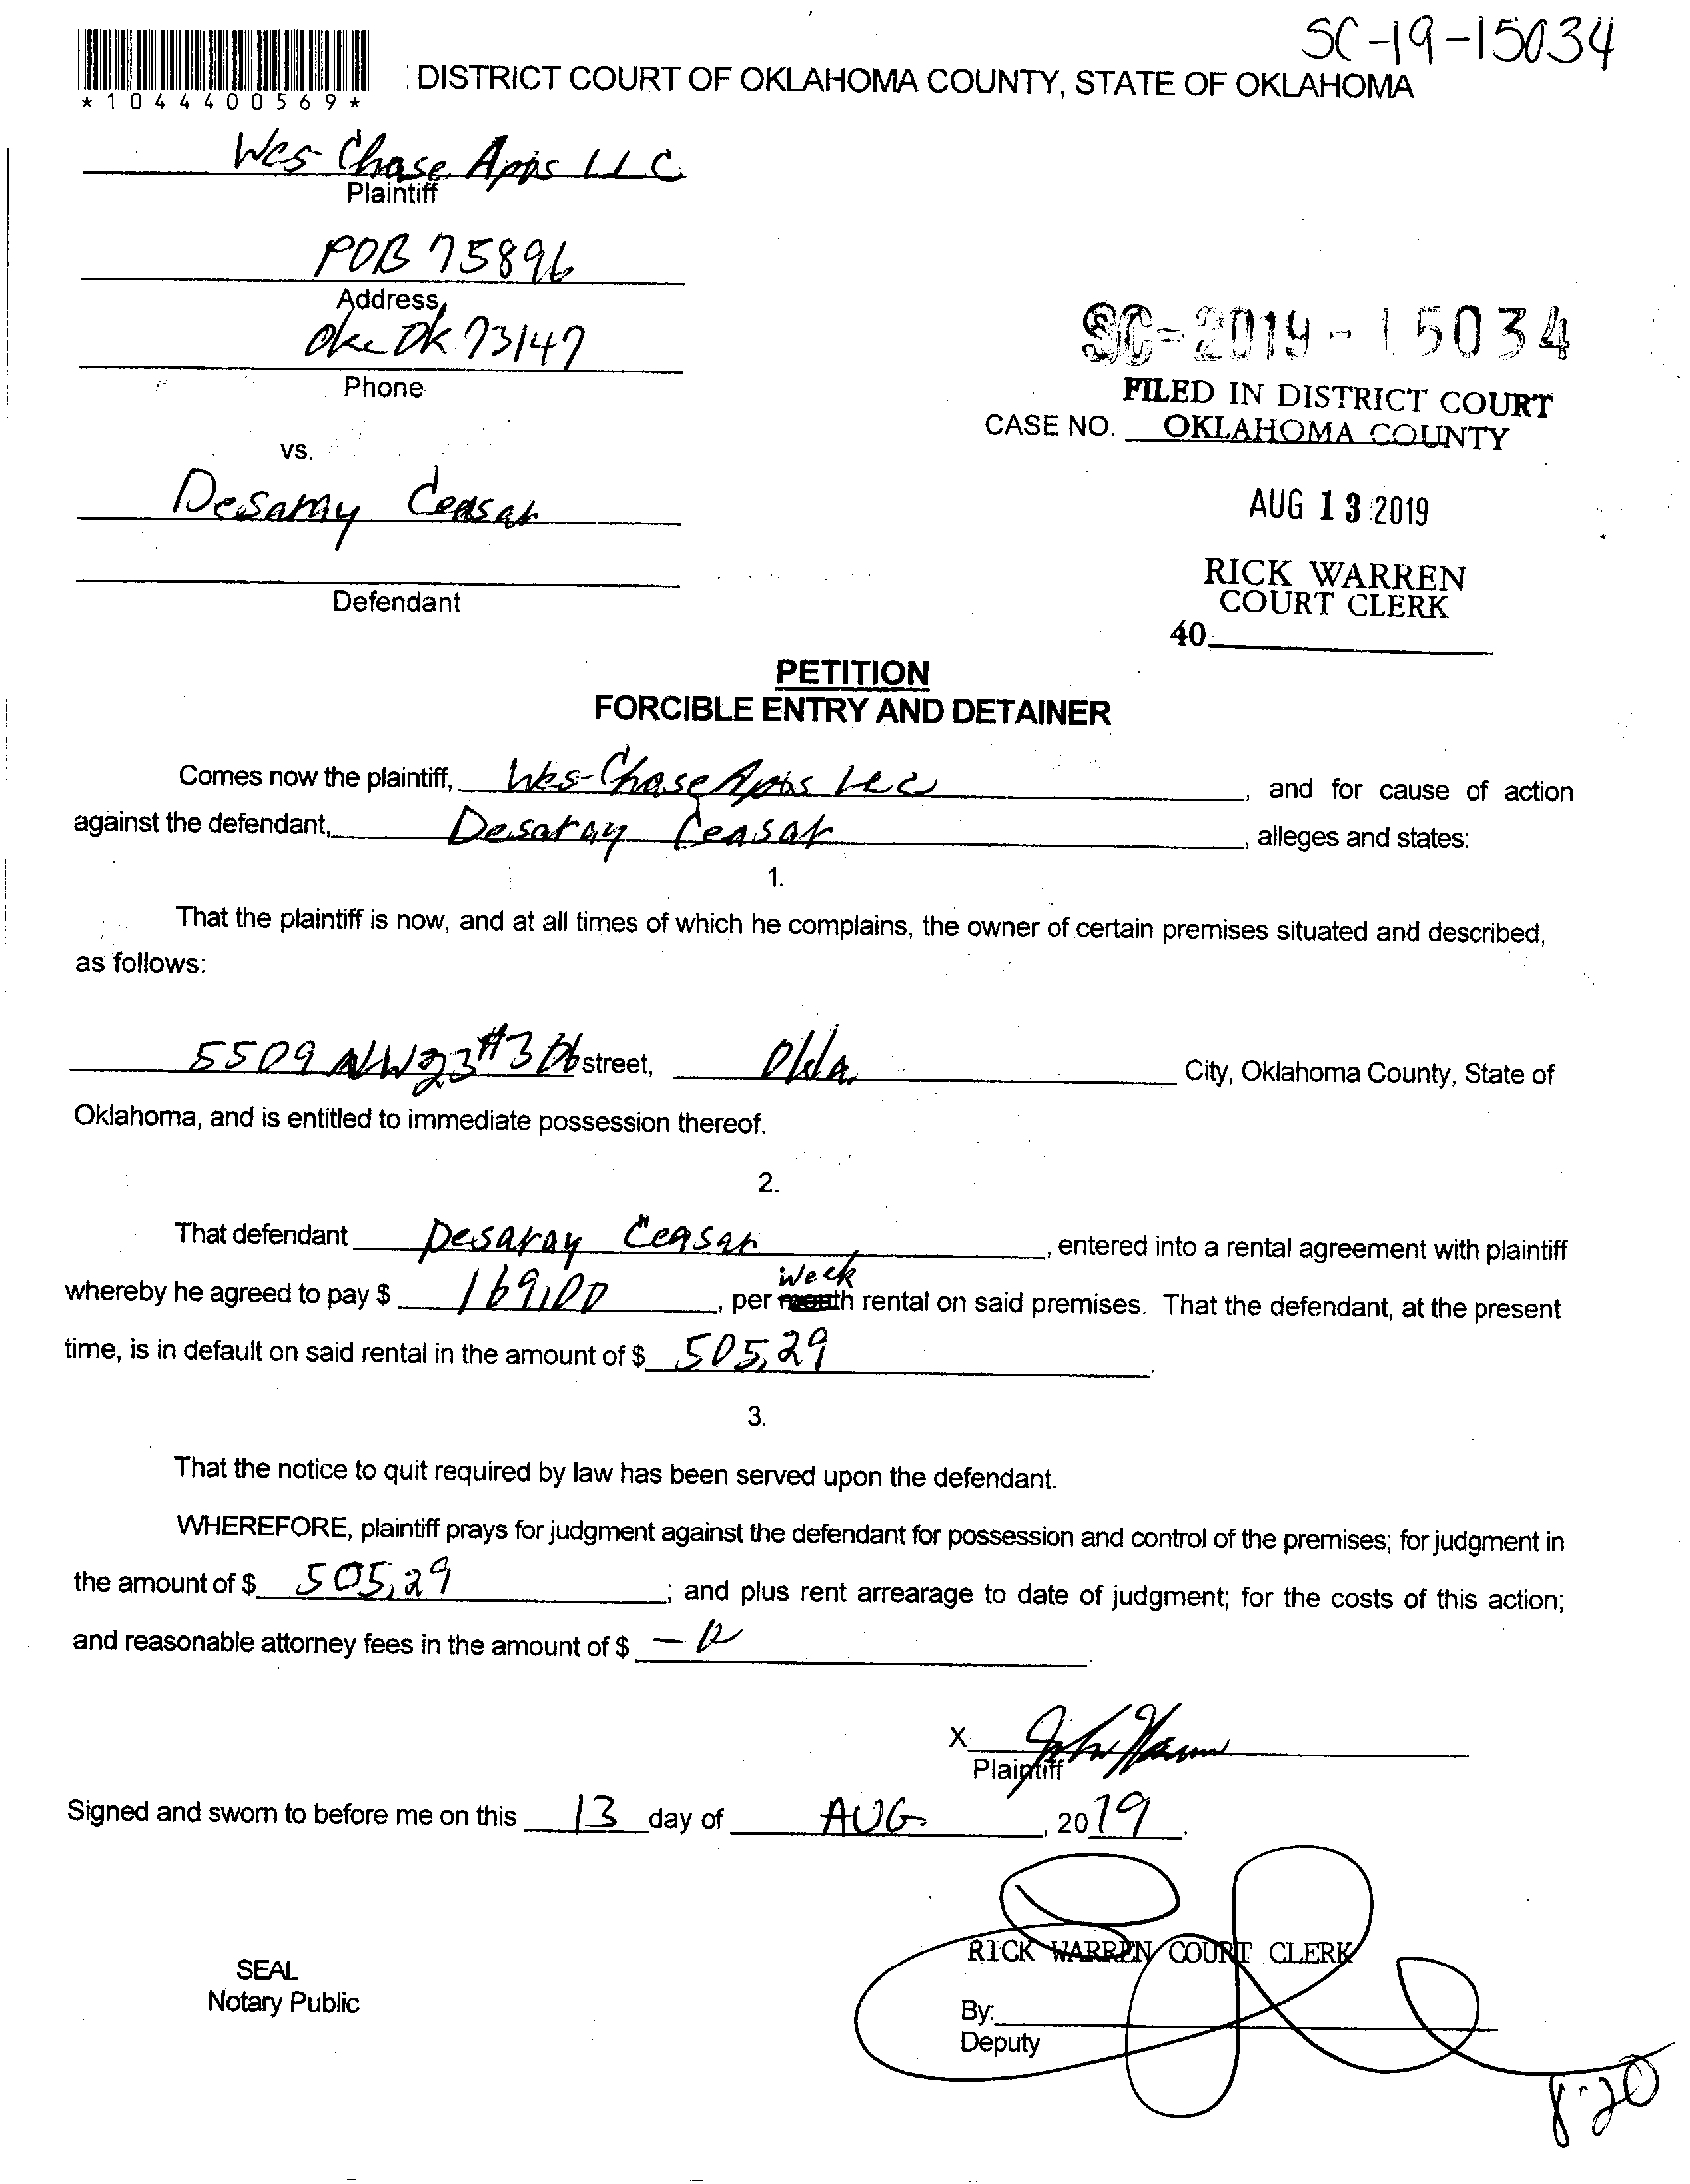 SC-19-15034
*1044400569*
DISTRICT COURT OF OKLAHOMA COUNTY, STATE OF OKLAHOMA
Wes Chase Apts LLC
Plaintiff
POB 75896
Address
Okc OK 73147
Phone
SC-2019-15034
FILED IN DISTRICT COURT
CASE NO. OKLAHOMA COUNTY
vs.
Desaray Ceasar
AUG 13 2019
Defendant
RICK WARREN
COURT CLERK
40
PETITION
FORCIBLE ENTRY AND DETAINER
Comes now the plaintiff, Wes-Chase Apts LLC, and for cause of action
against the defendant, Desaray Ceasar, alleges and states:
1.
That the plaintiff is now, and at all times of which he complains, the owner of certain premises situated and described,
as follows:
5509 NW 23 #306 street, Okla. City, Oklahoma County, State of
Oklahoma, and is entitled to immediate possession thereof.
2.
That defendant Desaray Ceasar, entered into a rental agreement with plaintiff
whereby he agreed to pay $ 169.00, per month Week rental on said premises. That the defendant, at the present
time, is in default on said rental in the amount of $ 505.29.
3.
That the notice to quit required by law has been served upon the defendant.
WHEREFORE, plaintiff prays for judgment against the defendant for possession and control of the premises; for judgment in
the amount of $ 505.29; and plus rent arrearage to date of judgment; for the costs of this action;
and reasonable attorney fees in the amount of $
X
Plaintiff
Signed and sworn to before me on this 13 day of AUG, 2019.
RICK WARREN COURT CLERK
SEAL
Notary Public
By:
Deputy
8-20